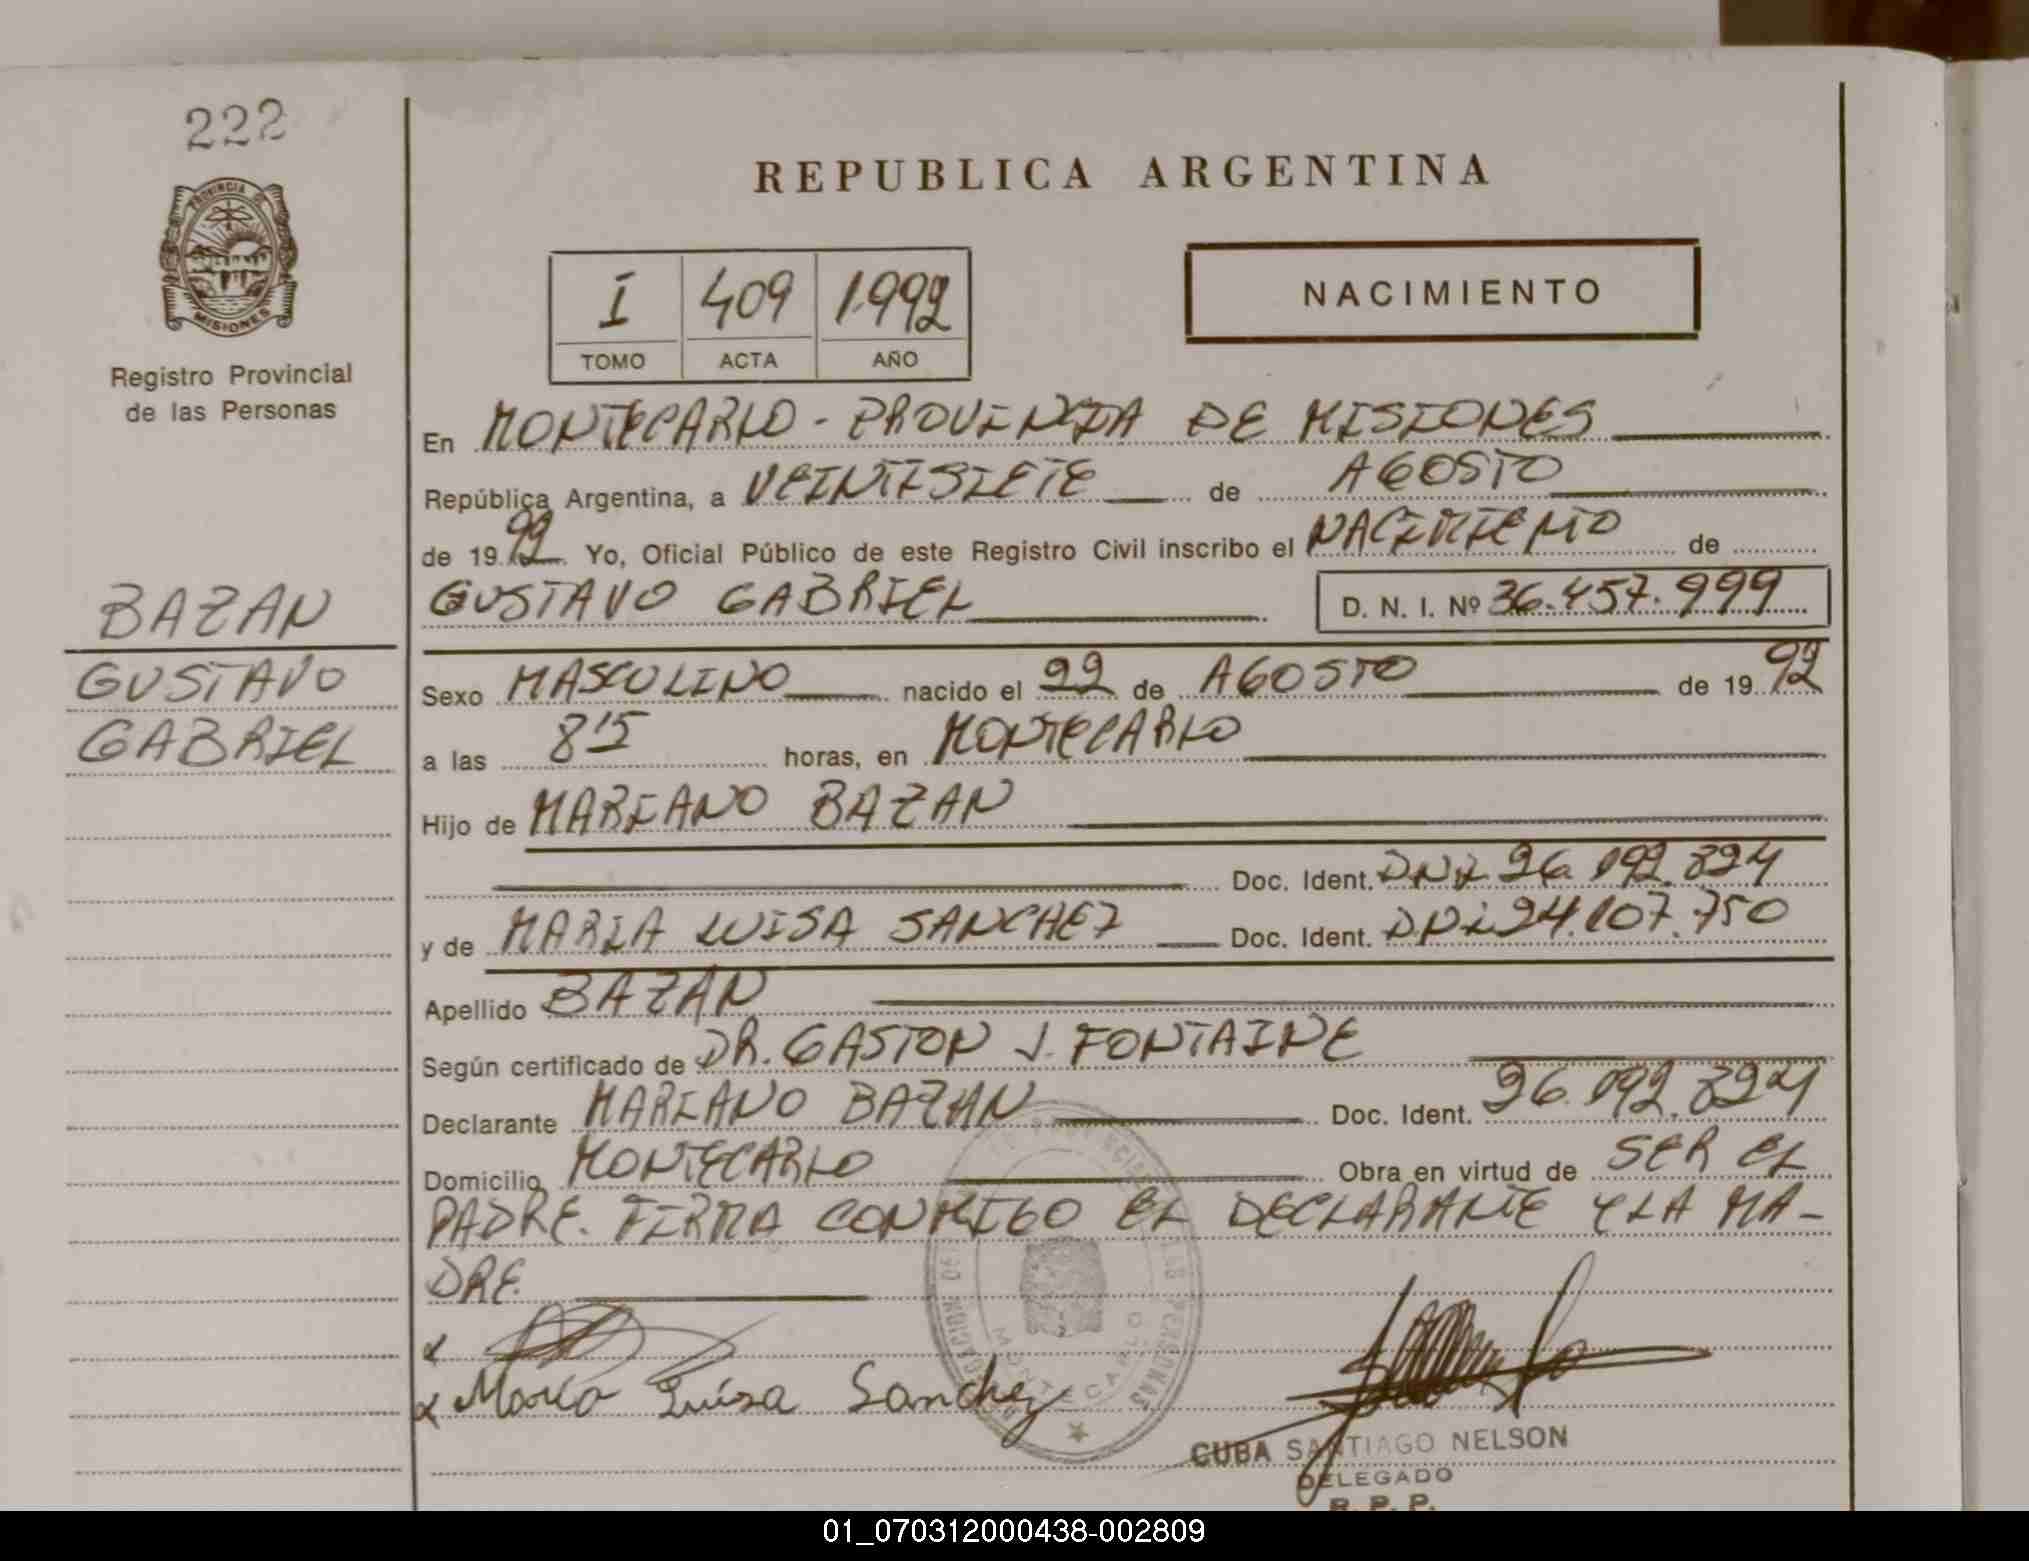 222
REPUBLICA ARGENTINA
PROVINCIA DE
MISIONES
Registro Provincial
de las Personas
I 409 1.992
TOMO ACTA AÑO
NACIMIENTO
En MONTECARLO - PROVINCIA DE MISIONES
República Argentina, a VEINTISIETE de AGOSTO
de 1992 Yo, Oficial Público de este Registro Civil inscribo el NACIMIENTO de
GUSTAVO GABRIEL D. N. I. Nº 36.457.999
BAZAN
GUSTAVO
GABRIEL
Sexo MASCULINO nacido el 22 de AGOSTO de 1992
a las 8'15 horas, en MONTECARLO
Hijo de MARIANO BAZAN
Doc. Ident. DNI 26.092.824
y de MARIA LUISA SANCHEZ Doc. Ident. DNI 24.107.750
Apellido BAZAN
Según certificado de DR. GASTON J. FONTAINE
Declarante MARIANO BAZAN Doc. Ident. 26.092.824
Domicilio MONTECARLO Obra en virtud de SER EL
PADRE. FIRMA CONMIGO EL DECLARANTE Y LA MA-
DRE.
Maria Luisa Sanchez
MONTECARLO
CUBA SANTIAGO NELSON
DELEGADO
R. P. P.
01_070312000438-002809